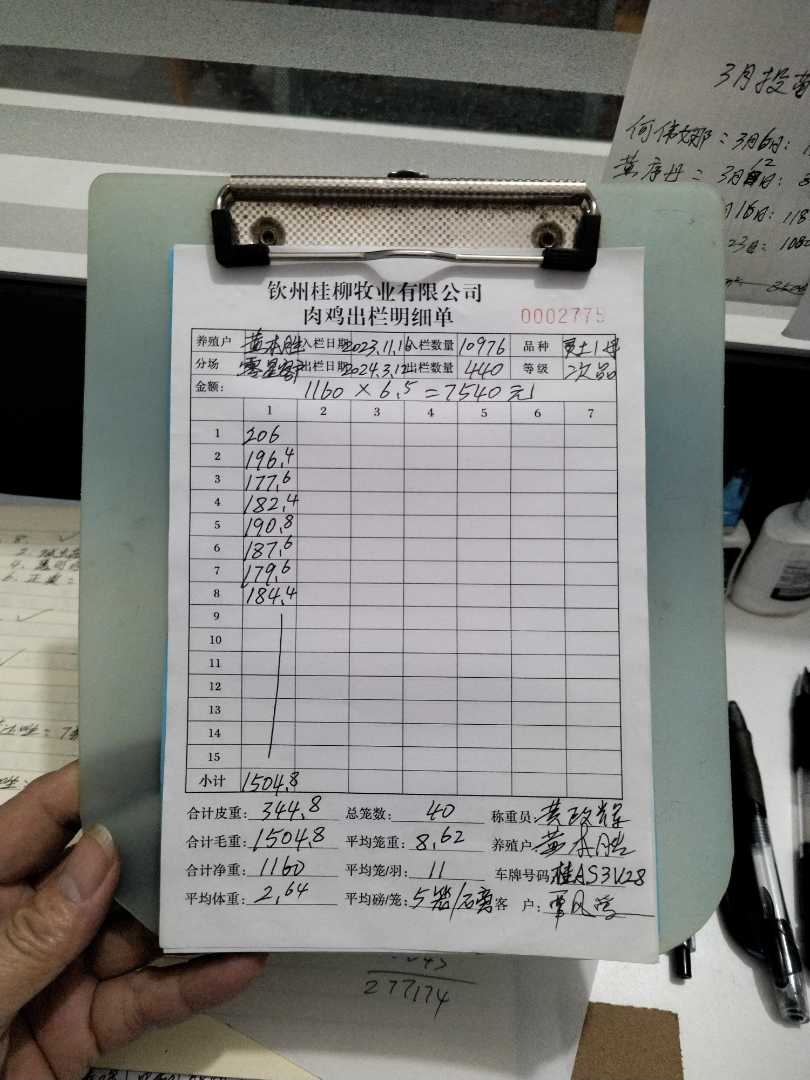 3月投苗
何伟娜：3月6日：
黄彦丹：3月12日：
月16日：118
23日：1080
钦州桂柳牧业有限公司
肉鸡出栏明细单
0002775
养殖户 黄本胜 入栏日期 2023.11.16 入栏数量 10976 品种
分场 零星客户 出栏日期 2024.3.12 出栏数量 440 等级 次品
金额： 1160 × 6.5 = 7540 元
1 2 3 4 5 6 7
1 206
2 196.4
3 177.6
4 182.4
5 190.8
6 187.6
7 179.6
8 184.4
9
10
11
12
13
14
15
小计 1504.8
合计皮重： 344.8 总笼数： 40 称重员： 黄政辉
合计毛重： 1504.8 平均笼重： 8.62 养殖户 黄本胜
合计净重： 1160 平均笼/羽： 11 车牌号码 桂AS3V28
平均体重： 2.64 平均磅/笼： 5笼/磅 客 户：
277174